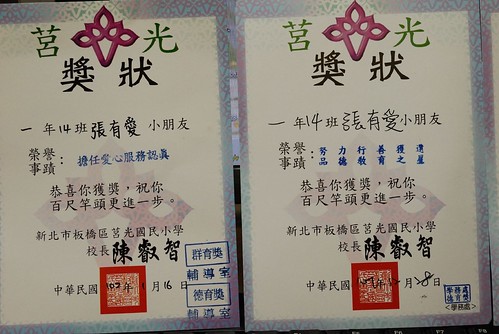 莒光
獎狀
一年14班張有愛小朋友
榮譽事蹟：擔任愛心服務認真
恭喜你獲獎，祝你
百尺竿頭更進一步。
新北市板橋區莒光國民小學
校長 陳叡智
群育獎
輔導室
德育獎
輔導室
中華民國 103年 1月16日
莒光
獎狀
一年14班張有愛小朋友
榮譽事蹟：
努力行善獲選
品德教育之星
恭喜你獲獎，祝你
百尺竿頭更進一步。
新北市板橋區莒光國民小學
校長 陳叡智
學務處
德育獎
<學務處>
中華民國 年 月28日